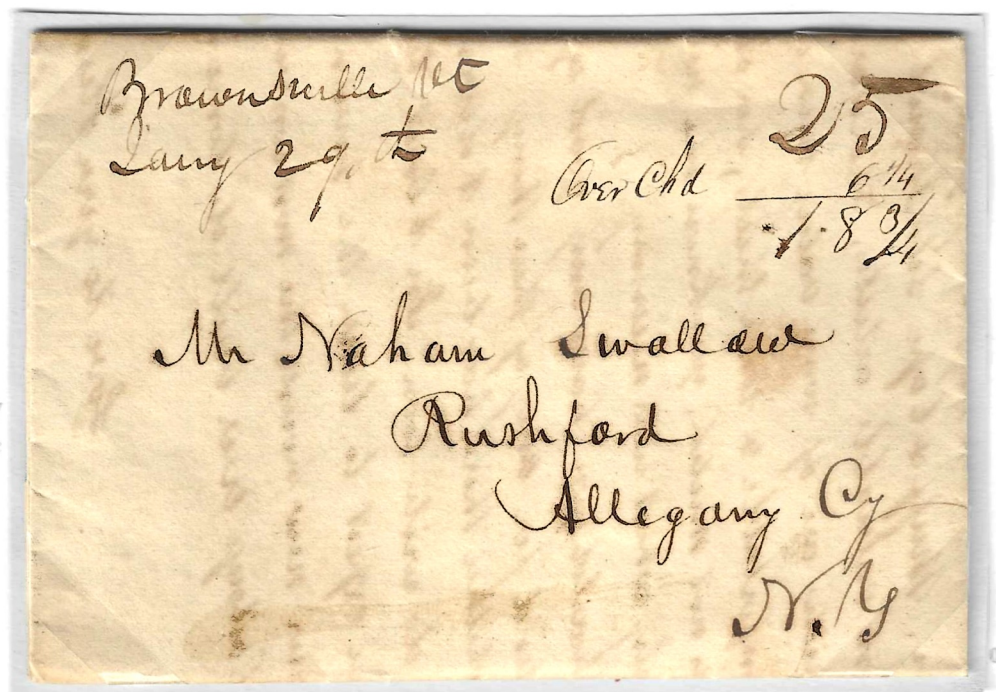 Brownsville Vt
Jany 29th
25
Over Chd 6 1/4
18 3/4
Mr Naham Swallow
Rushford
Allegany Cy
N.Y